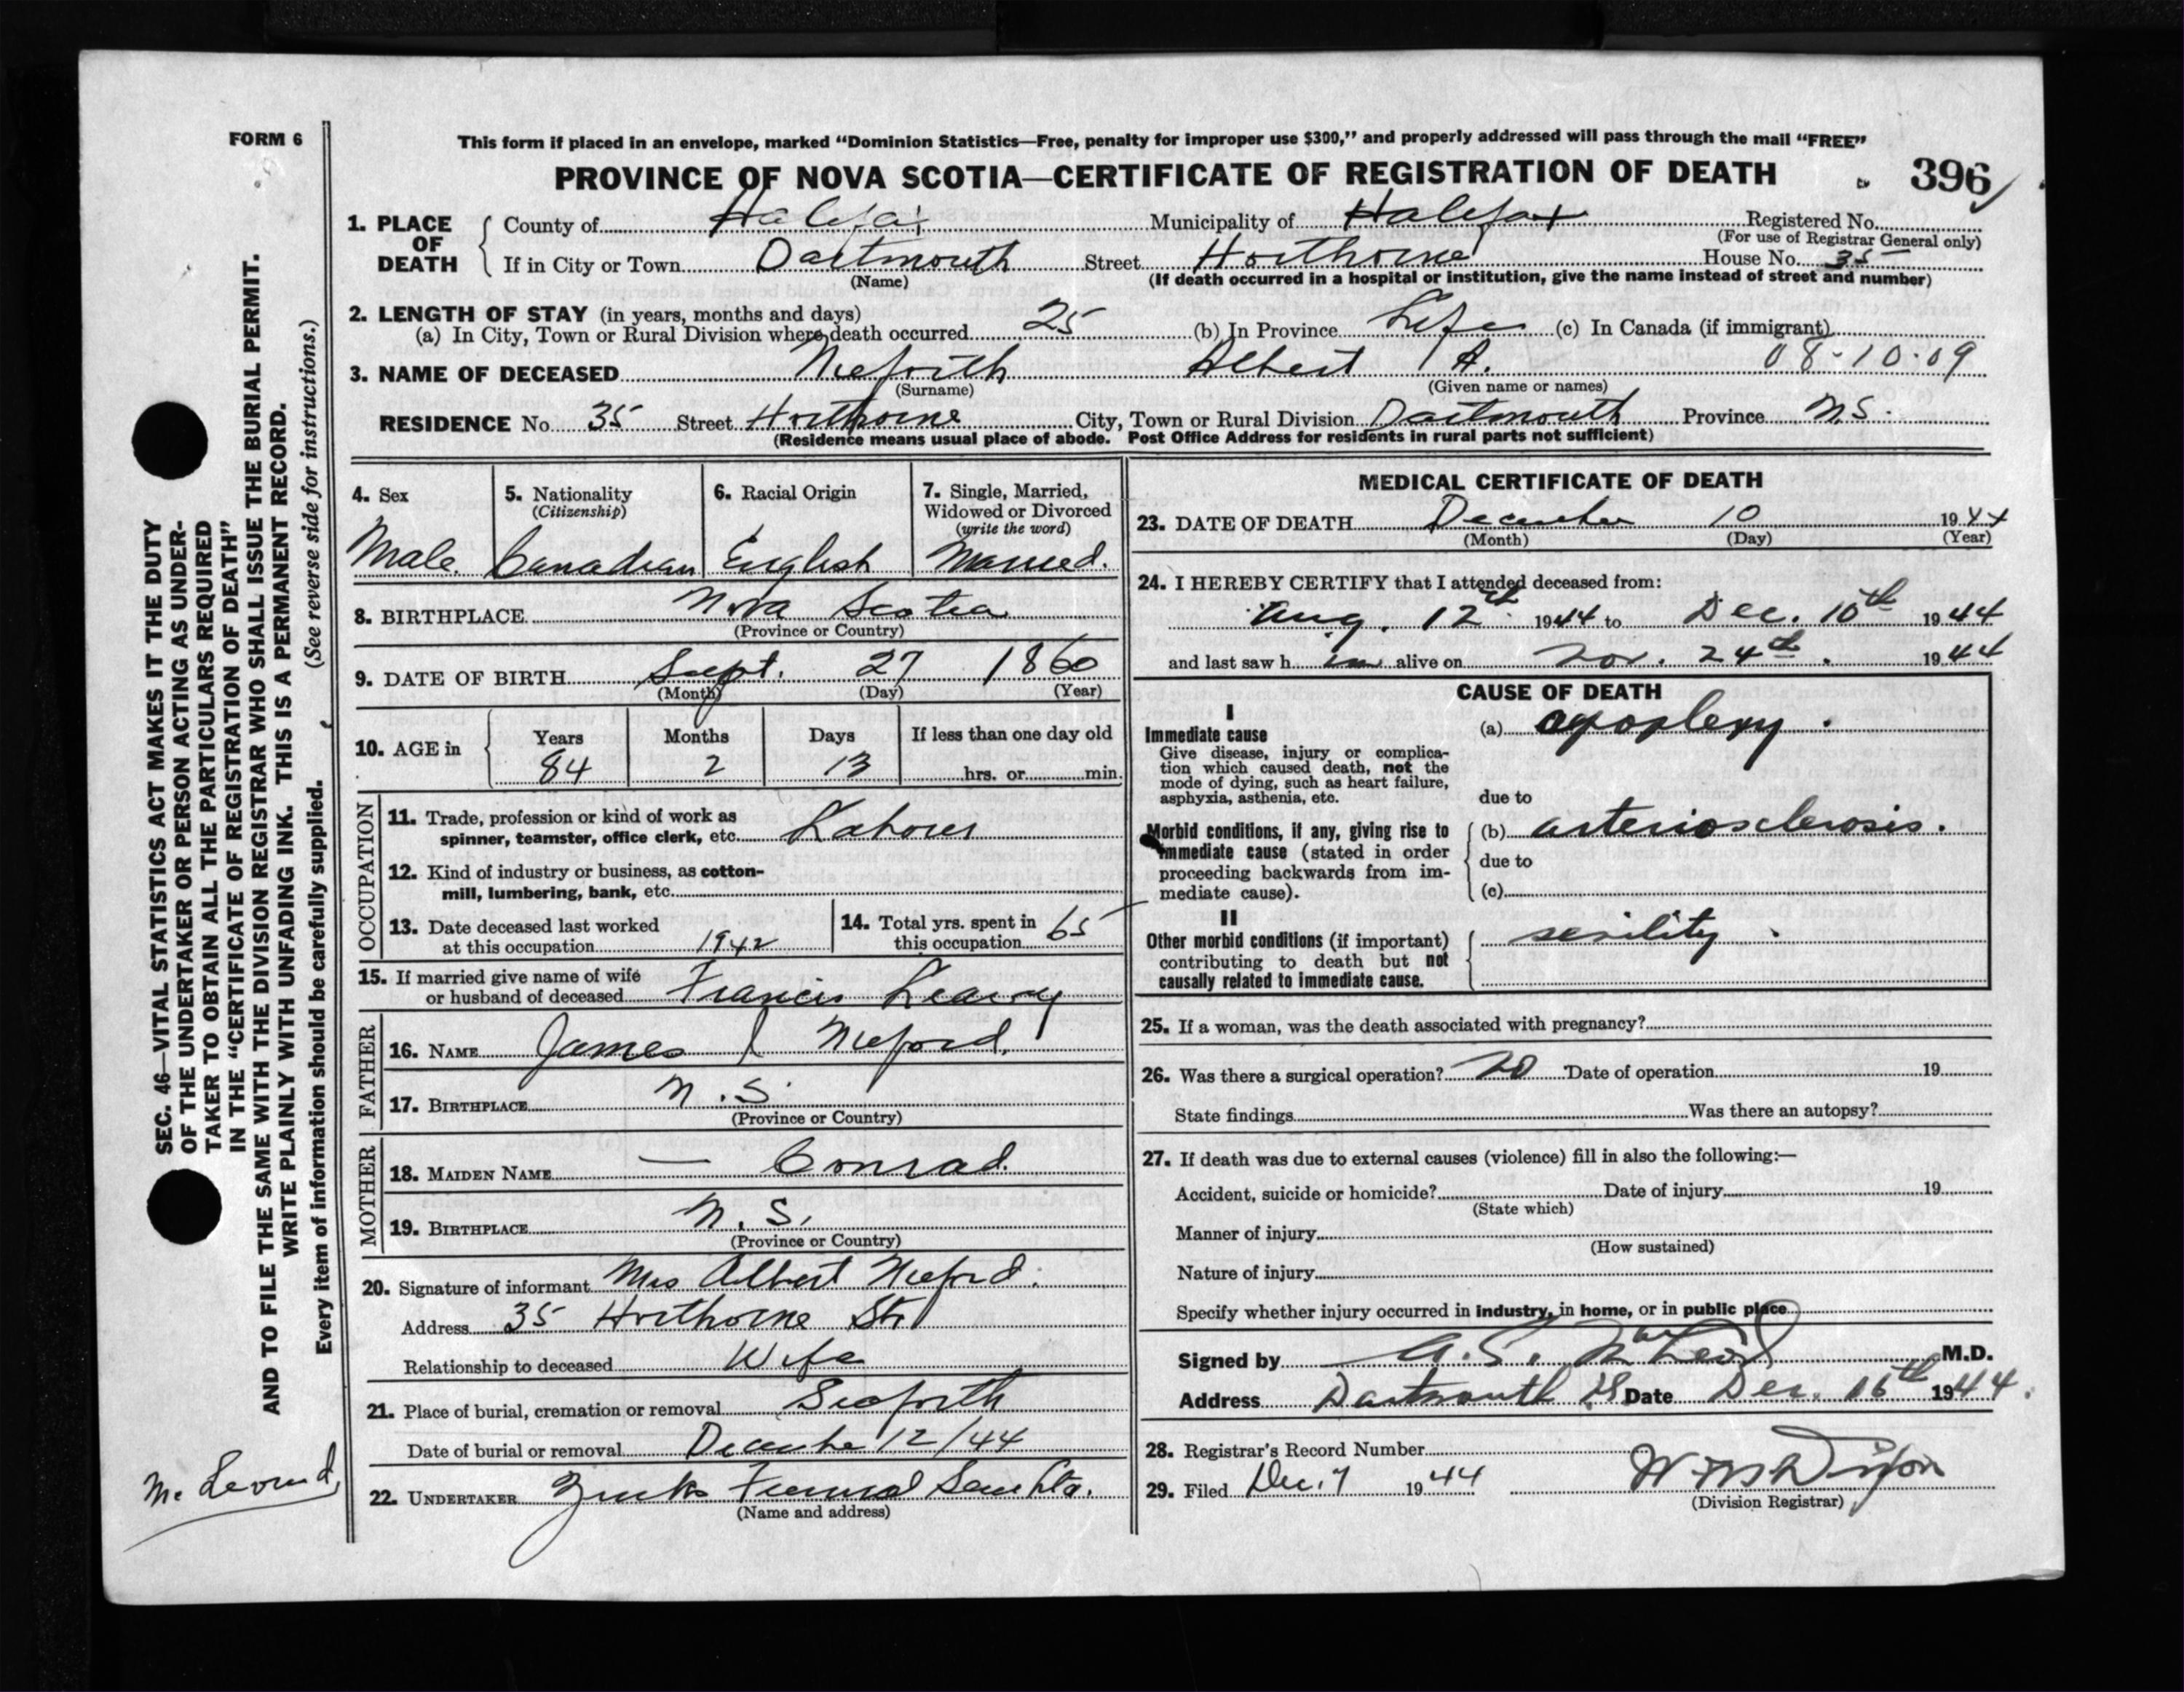 FORM 6
This form if placed in an envelope, marked “Dominion Statistics—Free, penalty for improper use $300,” and properly addressed will pass through the mail “FREE”
PROVINCE OF NOVA SCOTIA—CERTIFICATE OF REGISTRATION OF DEATH 396
1. PLACE OF DEATH County of Halifax Municipality of Halifax Registered No.
(For use of Registrar General only)
If in City or Town Dartmouth Street Horthorne House No. 35
(Name) (If death occurred in a hospital or institution, give the name instead of street and number)
2. LENGTH OF STAY (in years, months and days)
(a) In City, Town or Rural Division where death occurred 25 (b) In Province Life (c) In Canada (if immigrant)
3. NAME OF DECEASED Nieforth Albert A. 08-10-09
(Surname) (Given name or names)
RESIDENCE No. 35 Street Horthorne City, Town or Rural Division Dartmouth Province N.S.
(Residence means usual place of abode. Post Office Address for residents in rural parts not sufficient)
4. Sex 5. Nationality (Citizenship) 6. Racial Origin 7. Single, Married, Widowed or Divorced (write the word)
Male. Canadian English Married.
8. BIRTHPLACE Nova Scotia
(Province or Country)
9. DATE OF BIRTH Sept. 27 1860
(Month) (Day) (Year)
10. AGE in Years Months Days If less than one day old
84 2 13 hrs. or min.
OCCUPATION
11. Trade, profession or kind of work as
spinner, teamster, office clerk, etc. Labourer
12. Kind of industry or business, as cotton-
mill, lumbering, bank, etc.
13. Date deceased last worked at this occupation 1942
14. Total yrs. spent in this occupation 65
15. If married give name of wife
or husband of deceased Francis Leavy
FATHER
16. NAME James Nieford.
17. BIRTHPLACE N.S.
(Province or Country)
MOTHER
18. MAIDEN NAME — Conrad.
19. BIRTHPLACE N.S.
(Province or Country)
20. Signature of informant Mrs Albert Nieford.
Address 35 Horthorne St.
Relationship to deceased Wife
21. Place of burial, cremation or removal Seaforth
Date of burial or removal December 12/44
22. UNDERTAKER Zinks Funeral
(Name and address)
MEDICAL CERTIFICATE OF DEATH
23. DATE OF DEATH December 10 1944
(Month) (Day) (Year)
24. I HEREBY CERTIFY that I attended deceased from:
Aug. 12th 1944 to Dec. 10th 1944
and last saw h im alive on Nov. 24th. 1944
CAUSE OF DEATH
I
Immediate cause (a) apoplexy.
Give disease, injury or complica-
tion which caused death, not the
mode of dying, such as heart failure,
asphyxia, asthenia, etc.
due to
Morbid conditions, if any, giving rise to (b) arteriosclerosis.
immediate cause (stated in order
due to
proceeding backwards from im-
mediate cause). (c)
II
Other morbid conditions (if important) senility.
contributing to death but not
causally related to immediate cause.
25. If a woman, was the death associated with pregnancy?
26. Was there a surgical operation? no Date of operation 19
State findings Was there an autopsy?
27. If death was due to external causes (violence) fill in also the following:—
Accident, suicide or homicide? Date of injury 19
(State which)
Manner of injury
(How sustained)
Nature of injury
Specify whether injury occurred in industry, in home, or in public place
Signed by A.S. McLeod M.D.
Address Dartmouth NS Date Dec. 16th 1944.
28. Registrar's Record Number
29. Filed Dec. 7 1944
(Division Registrar)
SEC. 46—VITAL STATISTICS ACT MAKES IT THE DUTY
OF THE UNDERTAKER OR PERSON ACTING AS UNDER-
TAKER TO OBTAIN ALL THE PARTICULARS REQUIRED
IN THE “CERTIFICATE OF REGISTRATION OF DEATH”
AND TO FILE THE SAME WITH THE DIVISION REGISTRAR WHO SHALL ISSUE THE BURIAL PERMIT.
WRITE PLAINLY WITH UNFADING INK. THIS IS A PERMANENT RECORD.
(See reverse side for instructions.)
Every item of information should be carefully supplied.